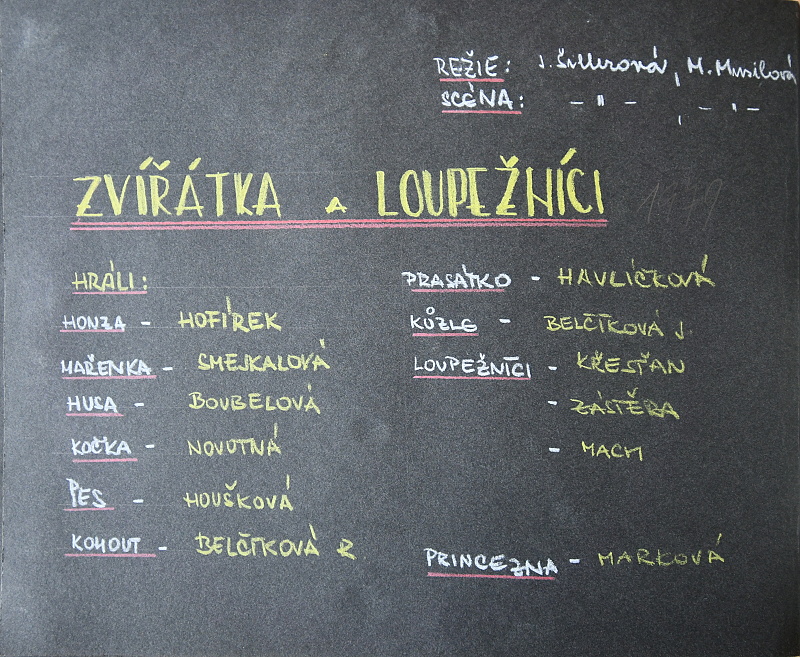 REŽIE: J. Šillerová, M. Musilová
SCÉNA: - " - , - " -
ZVÍŘÁTKA A LOUPEŽNÍCI
HRÁLI:
HONZA - HOFÍREK
MAŘENKA - SMEJKALOVÁ
HUSA - BOUBELOVÁ
KOČKA - NOVOTNÁ
PES - HOUŠKOVÁ
KOHOUT - BELČÍKOVÁ R
PRASÁTKO - HAVLÍČKOVÁ
KŮZLE - BELČÍKOVÁ J.
LOUPEŽNÍCI - KŘESŤAN
- ZÁSTĚRA
- MACH
PRINCEZNA - MARKOVÁ